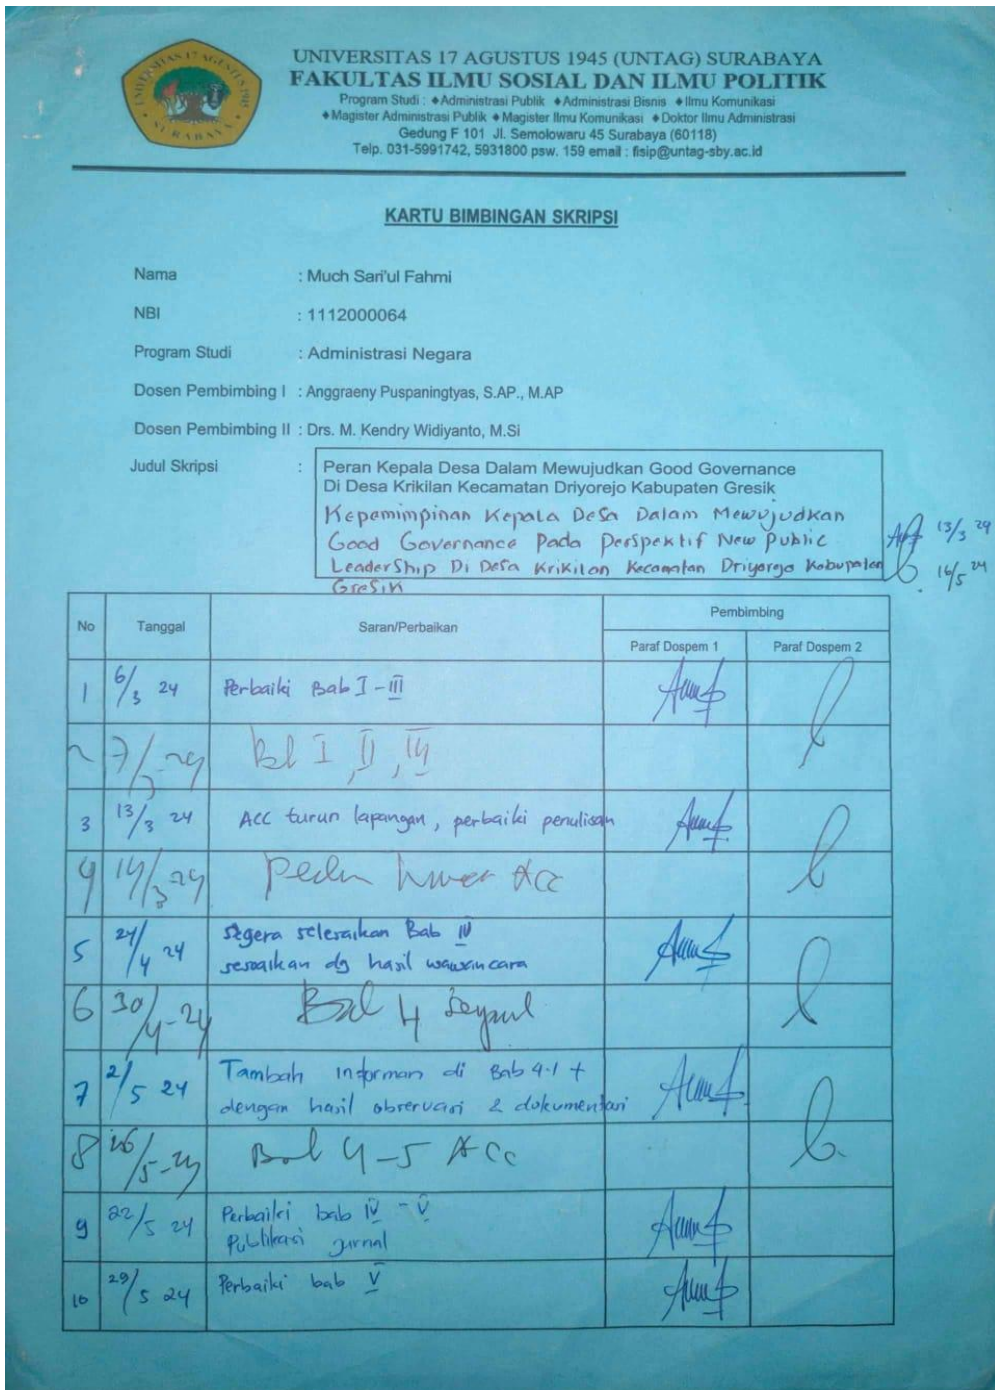 UNIVERSITAS 17 AGUSTUS 1945
SURABAYA
UNIVERSITAS 17 AGUSTUS 1945 (UNTAG) SURABAYA
FAKULTAS ILMU SOSIAL DAN ILMU POLITIK
Program Studi : ◆Administrasi Publik ◆Administrasi Bisnis ◆Ilmu Komunikasi
◆Magister Administrasi Publik ◆Magister Ilmu Komunikasi ◆Doktor Ilmu Administrasi
Gedung F 101 Jl. Semolowaru 45 Surabaya (60118)
Telp. 031-5991742, 5931800 psw. 159 email : fisip@untag-sby.ac.id
KARTU BIMBINGAN SKRIPSI
Nama : Much Sari'ul Fahmi
NBI : 1112000064
Program Studi : Administrasi Negara
Dosen Pembimbing I : Anggraeny Puspaningtyas, S.AP., M.AP
Dosen Pembimbing II : Drs. M. Kendry Widiyanto, M.Si
Judul Skripsi : Peran Kepala Desa Dalam Mewujudkan Good Governance
Di Desa Krikilan Kecamatan Driyorejo Kabupaten Gresik
Kepemimpinan Kepala Desa Dalam Mewujudkan
Good Governance Pada Perspektif New Public 13/3 24
Leadership Di Desa Krikilan Kecamatan Driyorjo Kabupaten 16/5 24
Gresik
No Tanggal Saran/Perbaikan Pembimbing
Paraf Dospem 1 Paraf Dospem 2
1 6/3 24 Perbaiki Bab I - III
2 7/3-24 I, II, III
3 13/3 24 ACC turun lapangan, perbaiki penulisan
4 14/3-24 Acc
5 24/4 24 segera selesaikan Bab IV
sesuaikan dg hasil wawancara
6 30/4-24 Bab 4
7 2/5 24 Tambah informan di Bab 4.1 +
dengan hasil observasi & dokumentasi
8 16/5-24 Bab 4-5 Acc
9 22/5 24 Perbaiki bab IV - V
Publikasi jurnal
10 29/5 24 Perbaiki bab V